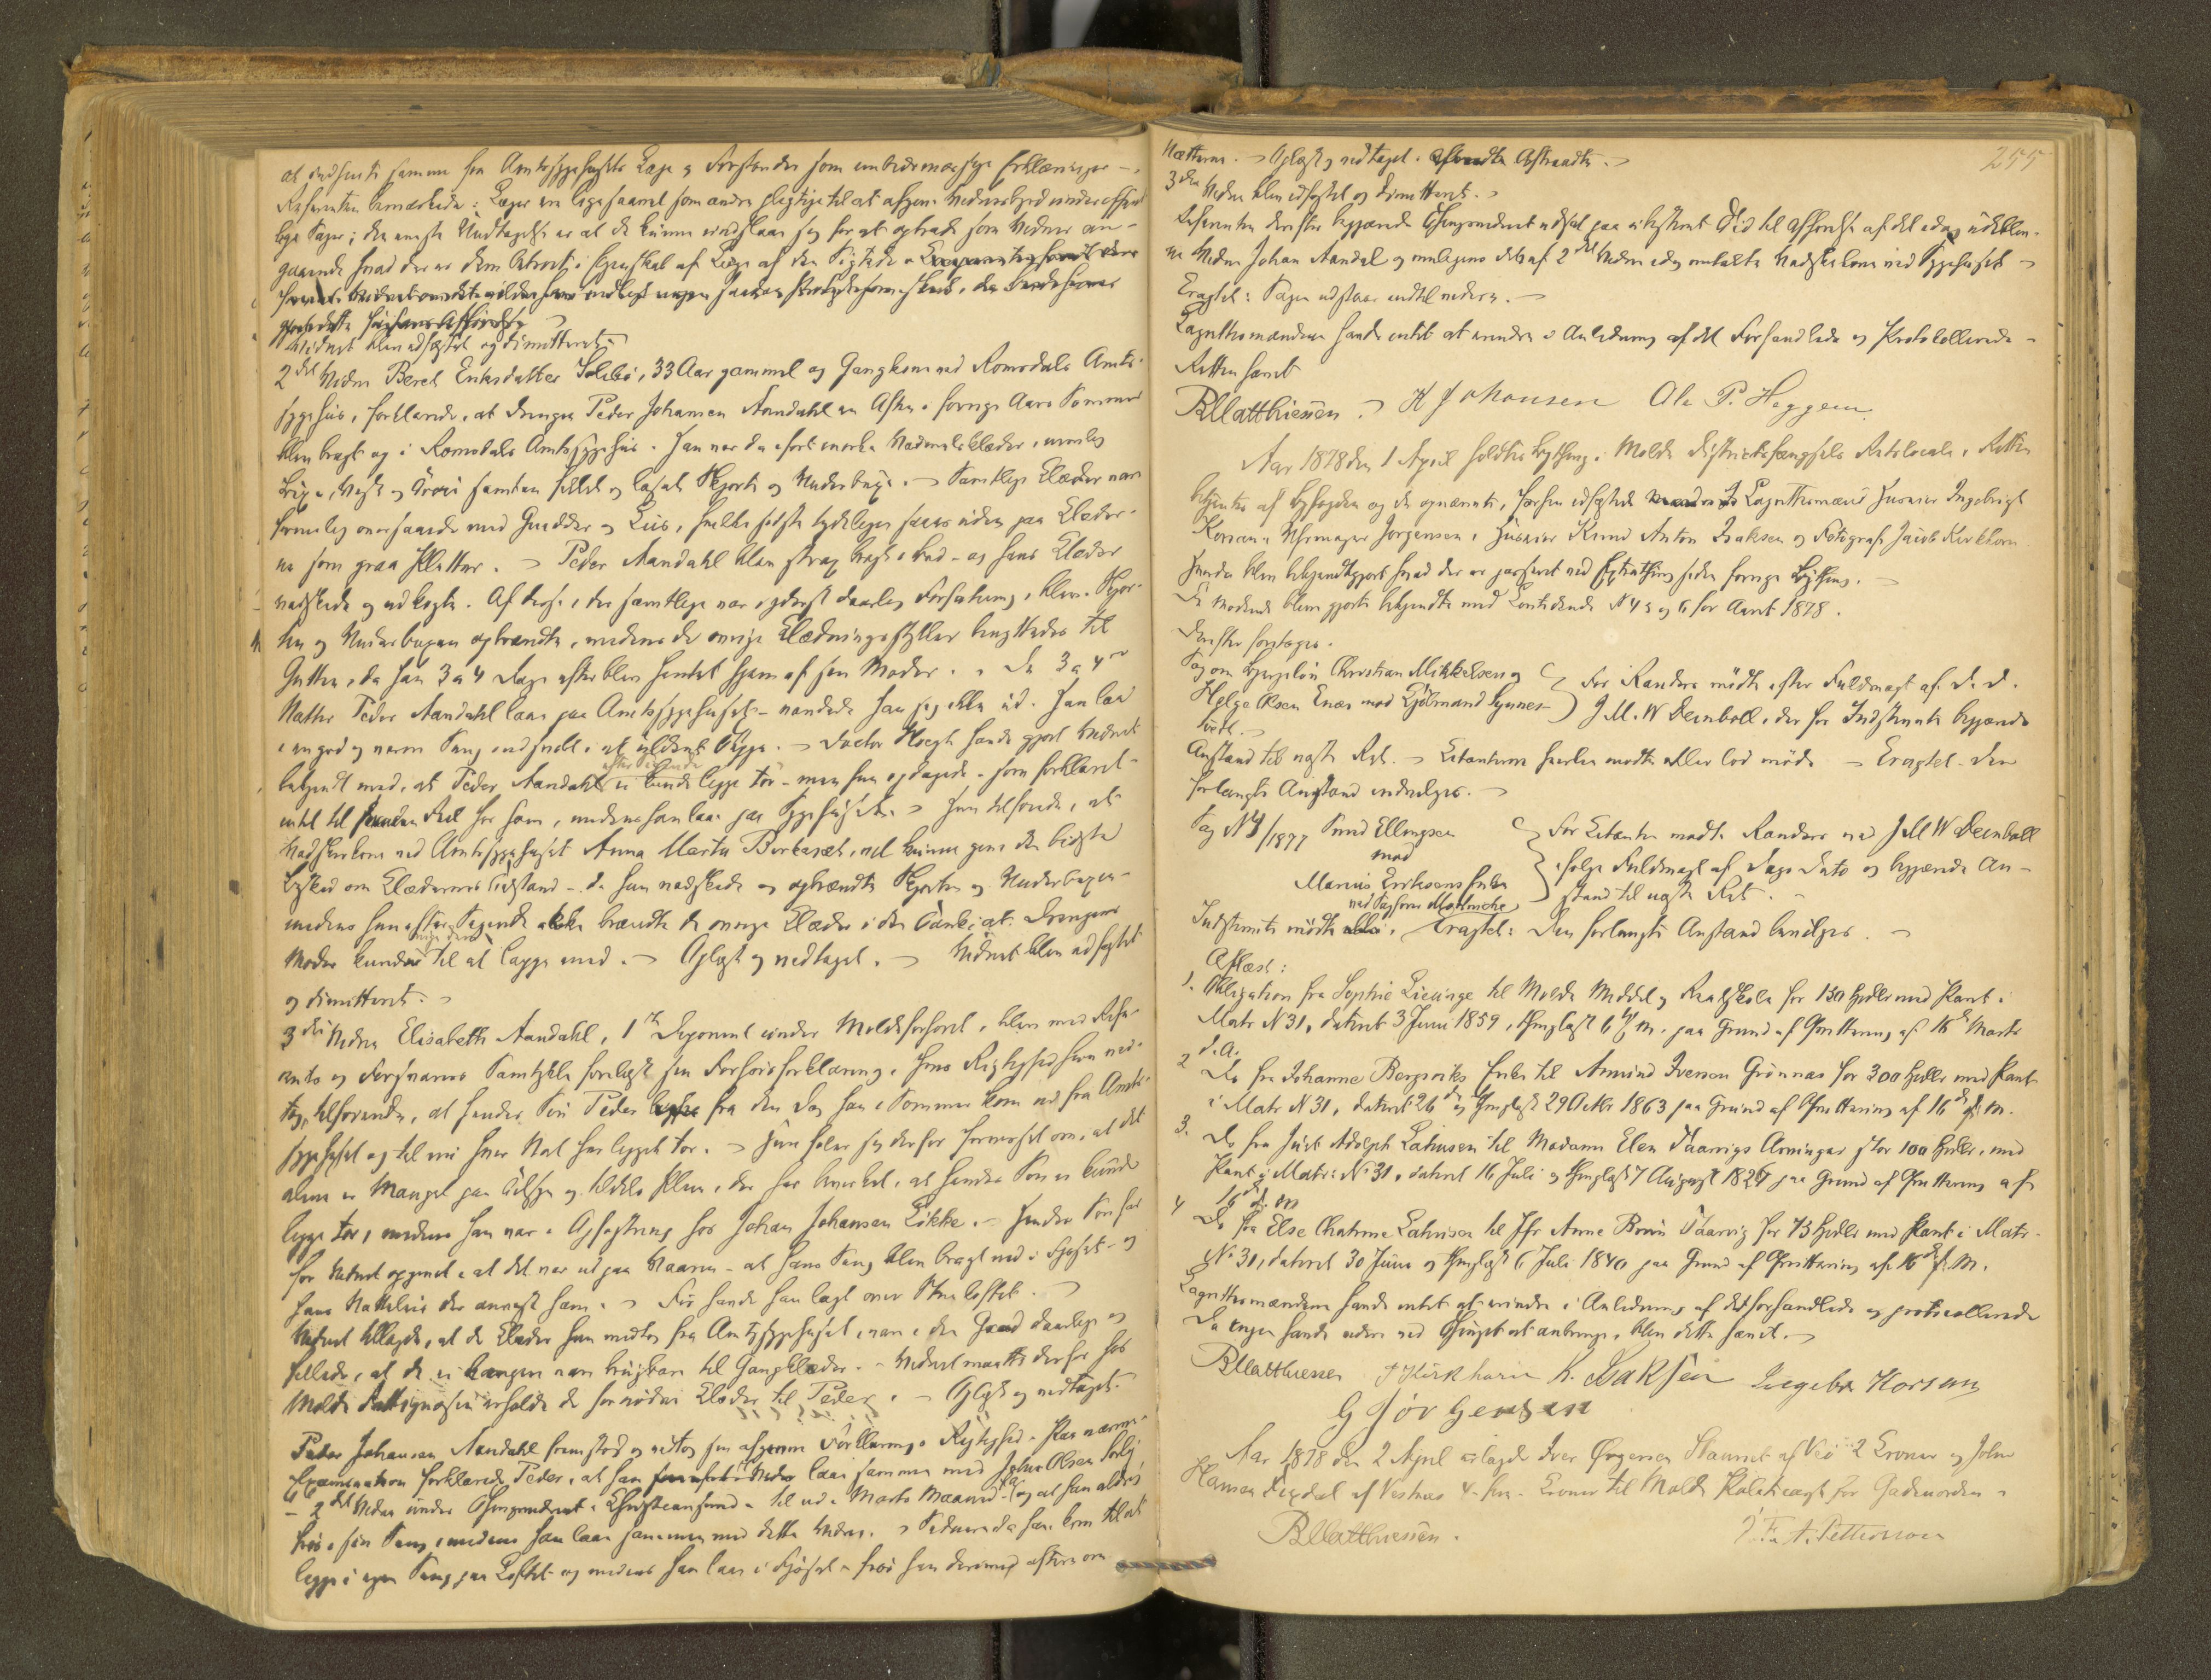 at indhente samme fra Amtssygehusets Læge og Forstander som embedsmæssige Erklæringer -
Referenten bemærkede: Læger er ligesaavel som andre pligtige til at afgive Vidnesbyrd under offent
lige Sager; den eneste Undtagelse er at de kunne undslaae sig for at optræde som Vidner an-
gaaende hvad der er dem betroet i Egenskab af Læge af den Sigtede
Vidnet blev udsagt og dimitteret
2det Vidne Beret Eriksdatter Solbø, 33 Aar gammel og Gangkone ved Romsdals Amts
sygehus, forklarede, at Drengen Peder Johansen Aandahl en Aften i forrige Aars Sommer
blev bragt op i Romsdals Amtssygehus. Han var da iført mørke Vadmelsklæder, nemlig
Buxe, Vest og Trøie samt en fillet og laset Skjorte og Underbuxe. Samtlige Klæder var
formelig oversaaede med Gnidder og Luus, hvilke sidste tydeligen saaes uden paa Klæder-
ne som graa Pletter. Peder Aandahl blev strax bragt i Bad - og hans Klæder
vaskede og udkogte. Af disse, der samtlige var i yderst daarlig Forfatning, blev Skjor-
ten og Underbuxen opbrændte, medens de øvrige Klædningsstykker benyttedes til
Gutten, da han 3 a 4 Dage efter blev hentet hjem af sin Moder. De 3 a 4
Nætter Peder Aandahl laae paa Amtssygehuset - vandede han sig ikke ud. Han laae
i en god og varm Seng indhyllet i et uldent Teppe. Doctor Høegh havde gjort Vidnet
bekjendt med, at Peder Aandahl efter Sigende ei kunde ligge tør - men hun opdagede - som forklaret -
intet til saadan Feil hos ham, medens han laae paa Sygehuset. Hun tilføiede, at
Vadskerkone ved Amtssygehuset Anna Marta Berkesæt, vil kunne give den bedste
Besked om Klædernes Tilstand - da hun vadskede og opbrændte Skjorten og Underbuxen -
medens hun efter Sigende ikke brændte de øvrige Klæder i den Tanke at Drengens
Moder kunde bruge dem til at lappe med. Oplæst og vedtaget. Vidnet blev udsagt
og dimitteret.
3die Vidne Elisabeth Aandahl, 1ste Deponent under Moldeforhøret, blev med Refe-
rents og Forsvarers Samtykke forelæst sin Forhørsforklaring, hvis Rigtighed hun ved-
tog, tilføiende, at hendes Søn Peder fra den Dag han i Sommer kom ned fra Amts-
sygehuset og til nu hver Nat har ligget tør. Hun holder sig derfor forvisset om, at det
alene er Mangel paa Tilsyn og tildels Pleie, der har bevirket, at hendes Søn ei kunde
ligge tør, medens han var i Opfostring hos Johan Johansen Eikke. Hendes Søn har
for Vidnet opgivet, at det var ud paa Vaaren - at hans Seng blev bragt ned i Fjøset - og
hans Natteleie der anvist ham. Før havde han lagt over Stueloftet.
Vidnet tillagde, at de Klæder hun modtog fra Amtssygehuset, var i den Grad daarlige og
fillede, at de ei længere var brugbare til Gangklæder. Vidnet maatte derfor hos
Molde Fattigvæsen erholde de fornødne Klæder til Peder. Oplæst og vedtaget.
Peder Johansen Aandahl fremstod og vedtog sin afgivne Forklarings Rigtighed. Paa nærmere
Examination forklarede Peder, at han laae sammen med Johan Olsen
- 2det Vidne under Thingsvidnet i Christiansund - til ud i Marts Maaned - og at han aldrig
frøs i sin Seng, medens han laae sammen med dette Vidne. Siden da han kom til at
ligge i egen Seng paa Loftet og medens han laae i Fjøset - frøs han derimod oftere om
255
Nætterne. Oplæst og vedtaget. Afstraadte.
3die Vidne blev udsagt og dimitteret.
Referenten derefter begjærede Thingsvidnet udsat paa ubestemt Tid til Afhørelse af det idag udeblev-
ne Vidne Johan Aandal og muligens det af 2det Vidne idag omtalte Vadskerkone ved Sygehuset
Eragtet: Sagen udstaar indtil videre.
Laugrettesmændene havde intet at erindre i Anledning af det Forhandlede og Protokollerede.
Retten hævet
BMatthiessen. K Johansen Ole P. Heggem
Aar 1878 den 1 April holdtes Bything i Molde Distriktsfængsels Retslocale. Retten
betjentes af Byfogden og de opnævnte, herfra udsagte Laugrettesmænd Huseier Ingebrigt
Korsan, Uhrmager Jørgensen, Huseier Knud Anton Isaksen og Fotograf Jacob Kirkhorn
Hvorda blev bekjendtgjort hvad der er passeret ved Extrathing siden forrige Bything.
De Mødende blev gjort bekjendte med Lovtidende N 4, 5 og 6 for Aaret 1878.
Derefter foretoges.
Sag om Gjergelin Christian Mikkelsen og
Helge Olsen Enæs mod Kjøbmand Synnes-
tvedt.
For Randers mødte efter Fuldmagt af D. D.
J M. W Deinboll, der for Indstevnte begjærede
Anstand til næste Ret. Citanterne hverken mødte eller lod møde. Eragtet. Den
forlangte Anstand indvilges.
Sag N 4/1877 Knud Ellingsen
mod
Marius Eriksens Enke
For Citanten mødte Randers ved J M W Deinboll
ifølge Fuldmagt af Dags Dato og begjærede An-
stand til næste Ret.
Indstevnte mødte. Eragtet: Den forlangte Anstand bevilges.
Aflæst:
1. Obligation fra Sophie Lievinge til Molde Middel og Realskole for 150 Spdlr med Pant i
Matr N 31, dateret 3 Juni 1859, thinglæst 6 s. M. paa Grund af Qvittering af 16de Marts
d. A.
2 Do fra Johanne Bergsviks Enke til Amund Iversen Grønnæs for 300 Spdlr med Pant
i Matr N 31, dateret 26de og thinglæst 29 Octbr 1863 paa Grund af Qvittering af 16de f. M.
3. Do fra Just Adolph Lahusen til Madame Elen Thaarvigs Arvinger stor 100 Spdlr, med
Pant i Matr: No 31, dateret 16 Juli og thinglæst 7 August 1826 paa Grund af Qvittering af
16de f. M
4 Do fra Else Chatrine Lahusen til Jfr Anne Thaarvig for 73 Spdlr med Pant i Matr.
No 31, dateret 30 Juni og thinglæst 6 Juli 1840 paa Grund af Qvittering af 16de f. M.
Laugrettesmændene havde intet at erindre i Anledning af det forhandlede og protocollerede
Da ingen havde videre ved Thinget at anbringe, blev dette hævet.
BMatthiessen J Kirkhorn K. Isaksen Ingebr Korsan
G Jørgensen
Aar 1878 den 2 April erlagde Iver Ørgersen Stauset af Veø 2 Kroner og John
Hansen Fixdal af Vestnæs 4 - fire - Kroner til Molde Politicasse for Gadeuorden.
BMatthiessen. F. A. Petterson